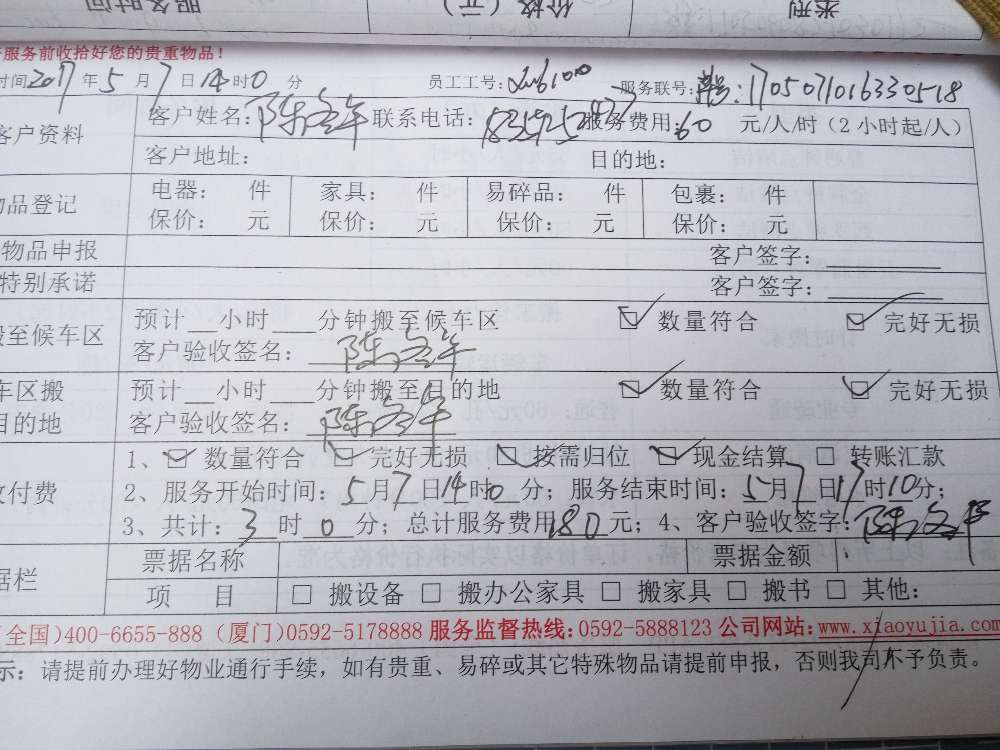 服务时间 价格（元） 类别
服务前收拾好您的贵重物品！
时间2017年5月7日14时0分 员工工号： 服务联号：单号：1705071016330518
客户资料 客户姓名： 联系电话： 服务费用：60 元/人/时（2小时起/人）
客户地址： 目的地：
物品登记 电器： 件 家具： 件 易碎品： 件 包裹： 件
保价： 元 保价： 元 保价： 元 保价： 元
物品申报 客户签字：
特别承诺 客户签字：
搬至候车区 预计__小时___分钟搬至候车区 数量符合 完好无损
客户验收签名：
车区搬 预计__小时___分钟搬至目的地 数量符合 完好无损
目的地 客户验收签名：
1、 数量符合 完好无损 按需归位 现金结算 转账汇款
收付费 2、服务开始时间：5月7日14时0分；服务结束时间：5月7日17时10分；
3、共计：3时0分；总计服务费用180元；4、客户验收签字：
据栏 票据名称 票据金额
项 目 搬设备 搬办公家具 搬家具 搬书 其他：
(全国)400-6655-888（厦门)0592-5178888 服务监督热线：0592-5888123 公司网站：www.xiaoyujia.com
示：请提前办理好物业通行手续，如有贵重、易碎或其它特殊物品请提前申报，否则我司不予负责。